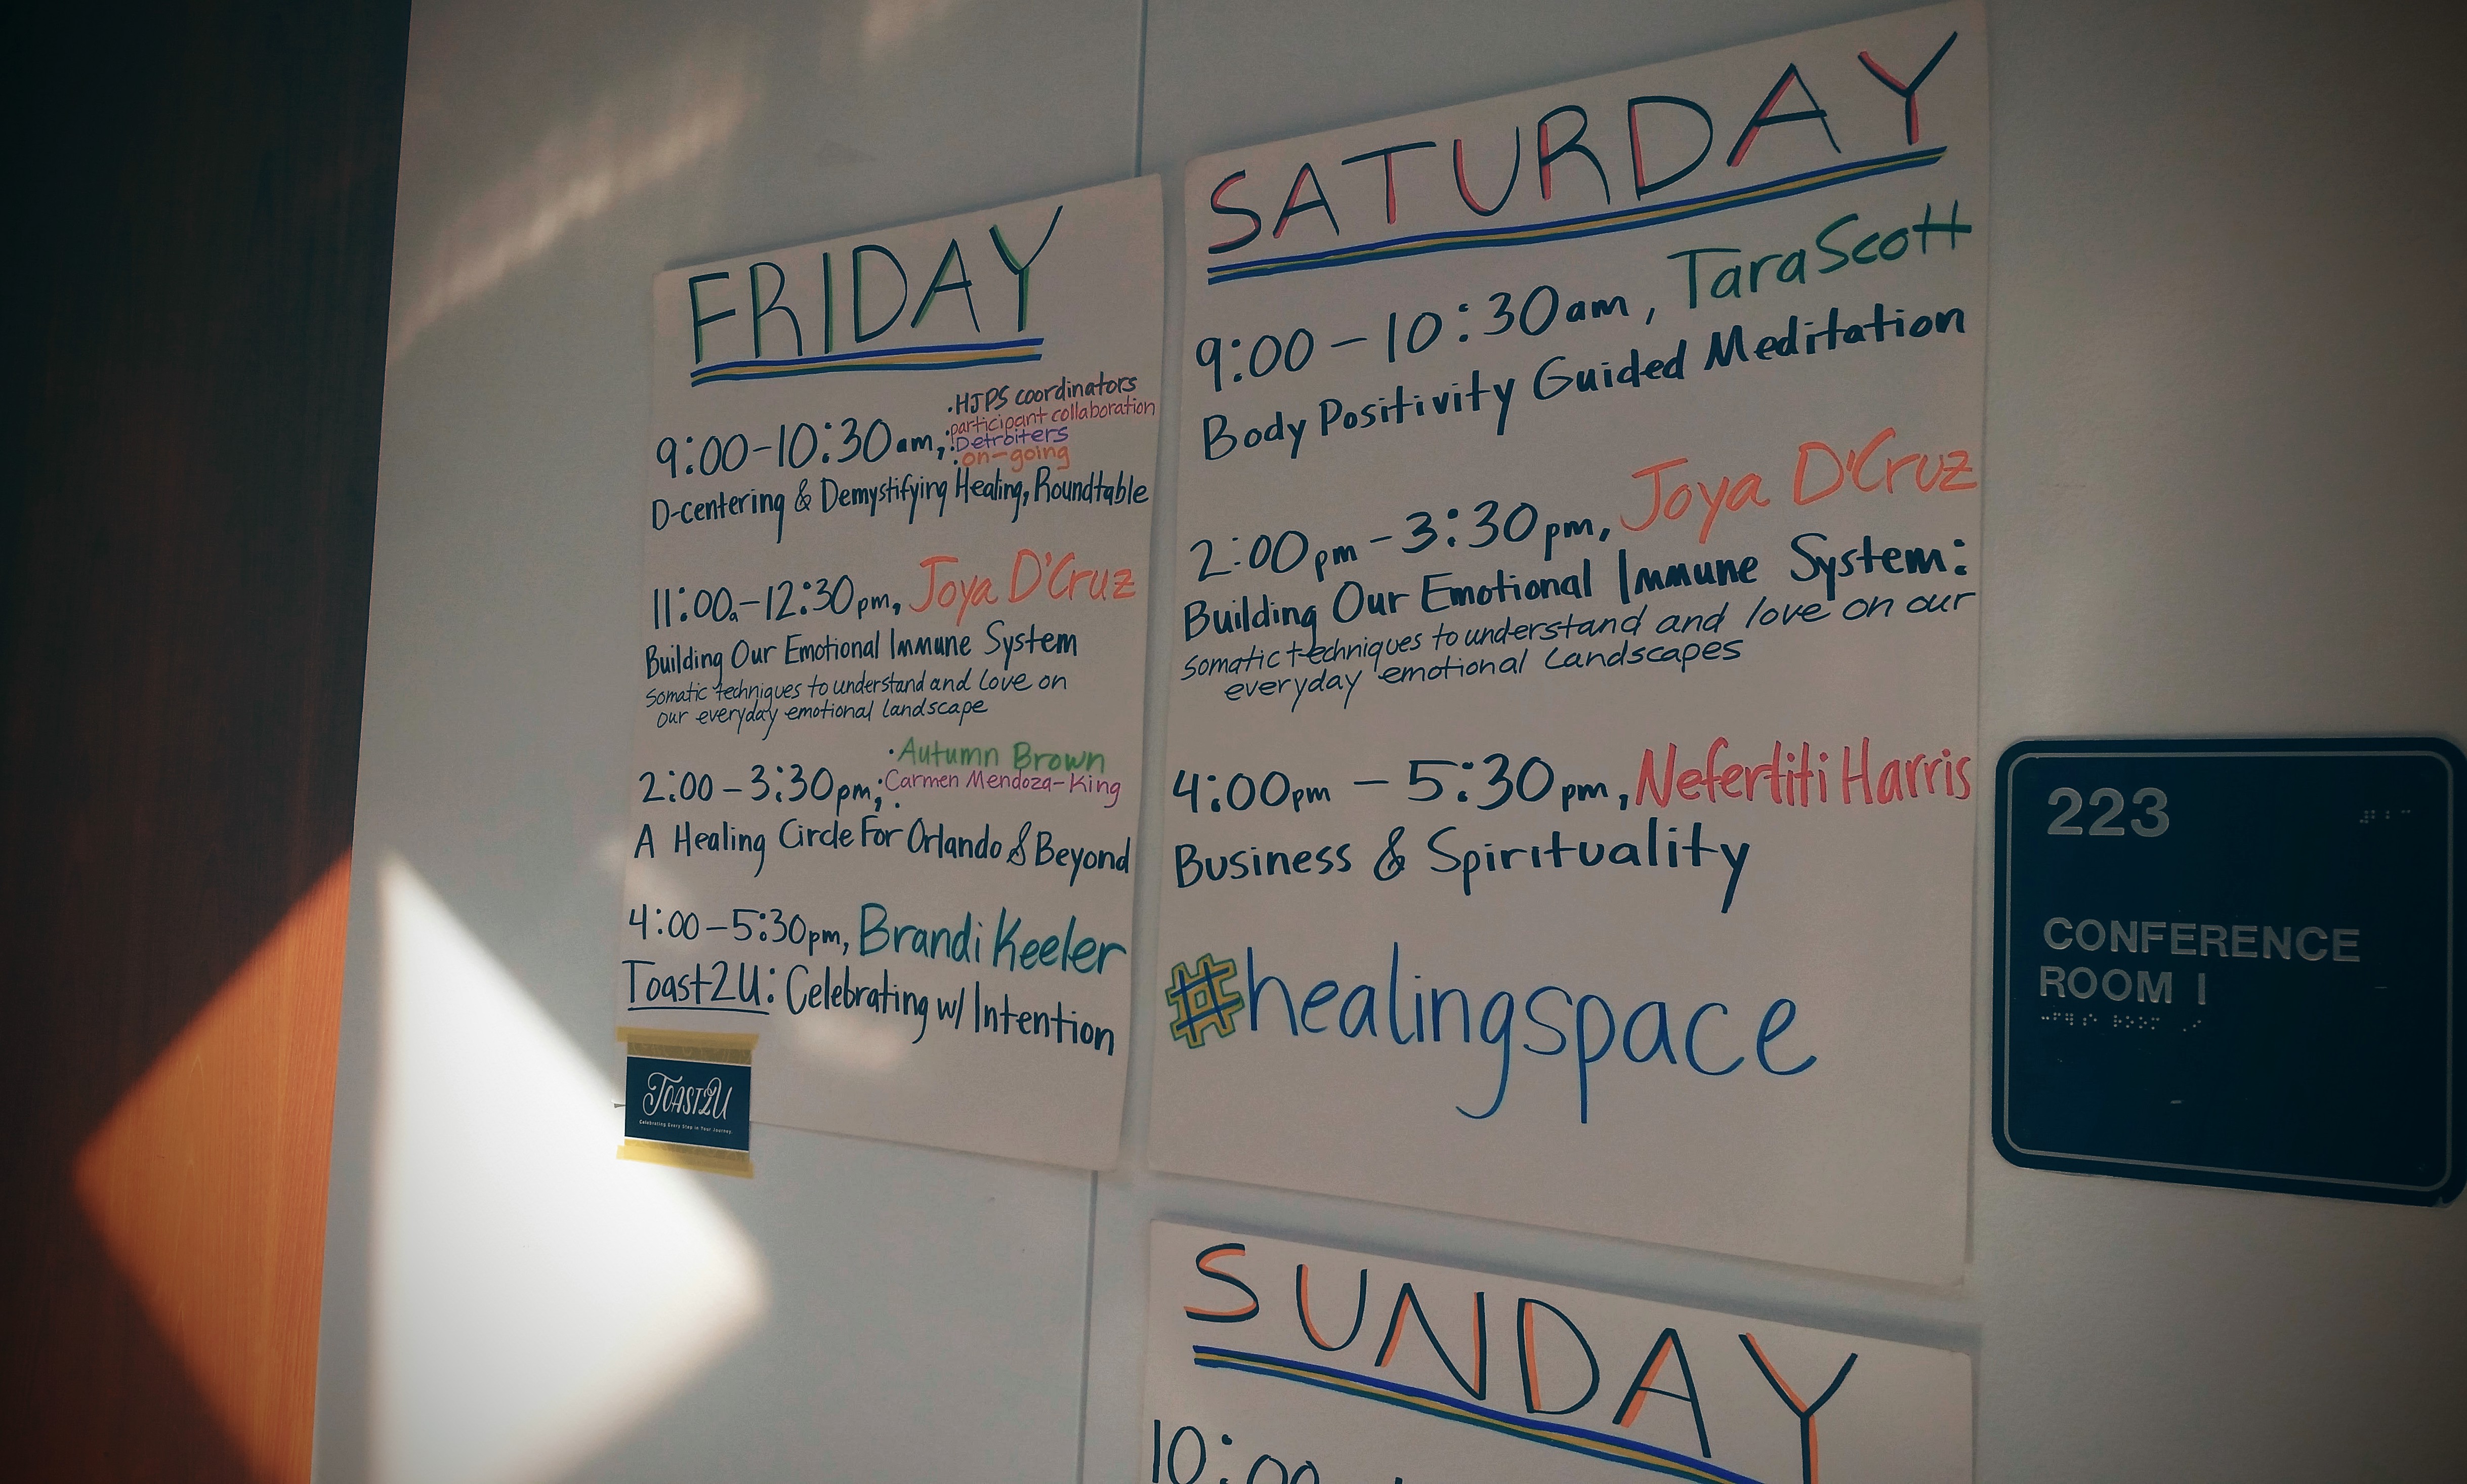 FRIDAY
9:00-10:30am,
·HJPS coordinators
participant collaboration
Detroiters
on-going
D-centering & Demystifying Healing, Roundtable
11:00a-12:30pm, Joya D'Cruz
Building Our Emotional Immune System
Somatic techniques to understand and love on
our everyday emotional landscape
2:00-3:30pm,
·Autumn Brown
Carmen Mendoza-King
A Healing Circle For Orlando & Beyond
4:00-5:30pm, Brandi Keeler
Toast2U: Celebrating w/ Intention
TOAST2U
Celebrating Every Step in Your Journey.
SATURDAY
9:00-10:30am, Tara Scott
Body Positivity Guided Meditation
2:00pm-3:30pm, Joya D'Cruz
Building Our Emotional Immune System:
Somatic techniques to understand and love on our
everyday emotional landscapes
4:00pm-5:30pm, Nefertiti Harris
Business & Spirituality
#healingspace
SUNDAY
10:00
223
CONFERENCE
ROOM I